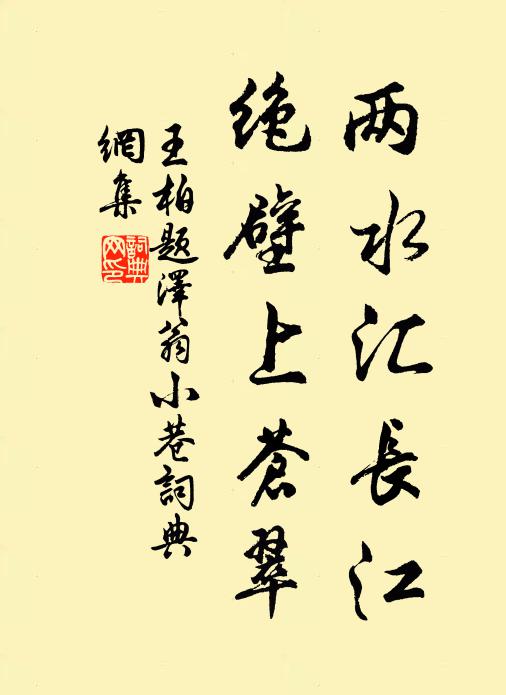 两水汇長江
绝壁上蒼翠
王柏题澤翁小巷詞典
網集
詞典
网印